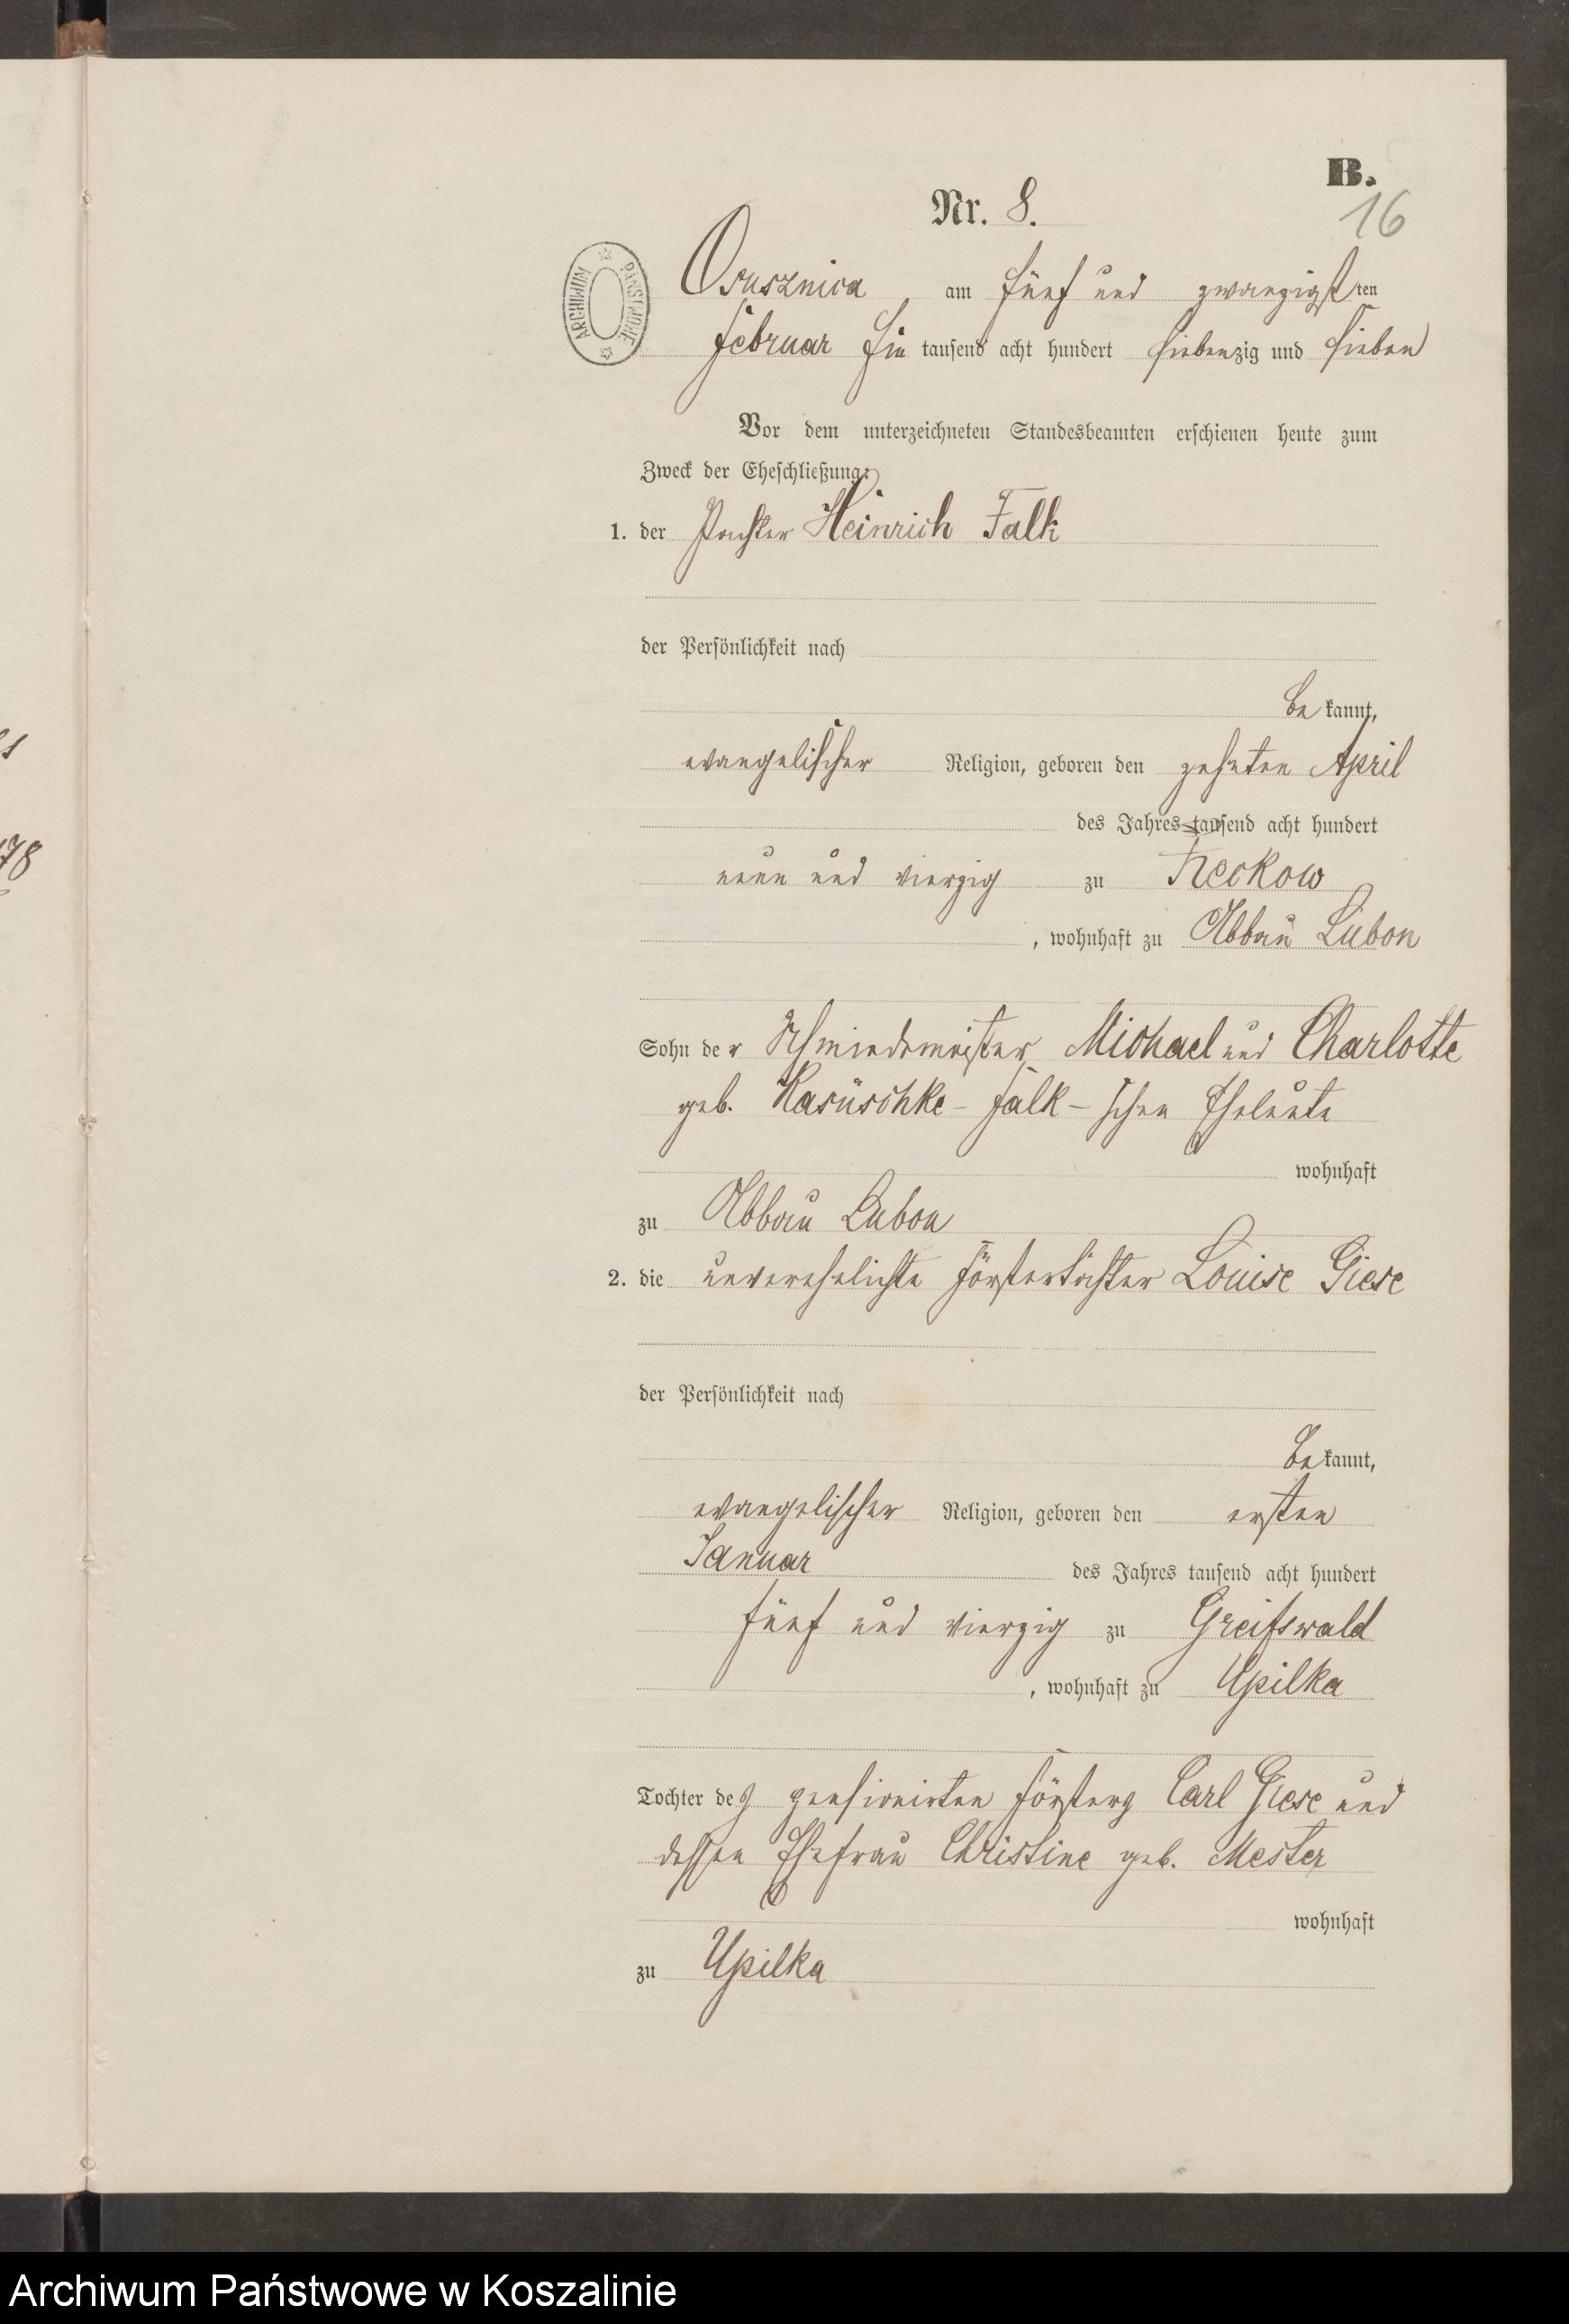 B.
Nr. 8.
16
ARCHIWUM PAŃSTWOWE
Osusznica, am fünf und zwanzigsten
Februar Ein tausend acht hundert siebenzig und sieben
Vor dem unterzeichneten Standesbeamten erschienen heute zum
Zweck der Eheschließung:
1. der Pächter Heinrich Falk
der Persönlichkeit nach
be kannt,
evangelischer Religion, geboren den zehnten April
des Jahres tausend acht hundert
neun und vierzig zu Reckow
, wohnhaft zu Abbau Lubon
Sohn der Schmiedemeister Michael und Charlotte
geb. Kasüschke - Falk - schen Eheleute
wohnhaft
zu Abbau Lubon
2. die unverehelichte Förstertochter Louise Giese
der Persönlichkeit nach
be kannt,
evangelischer Religion, geboren den ersten
Januar des Jahres tausend acht hundert
fünf und vierzig zu Greifswald
, wohnhaft zu Upilka
Tochter des pensionirten Försters Carl Giese und
dessen Ehefrau Christine geb. Mester
wohnhaft
zu Upilka
78
Archiwum Państwowe w Koszalinie